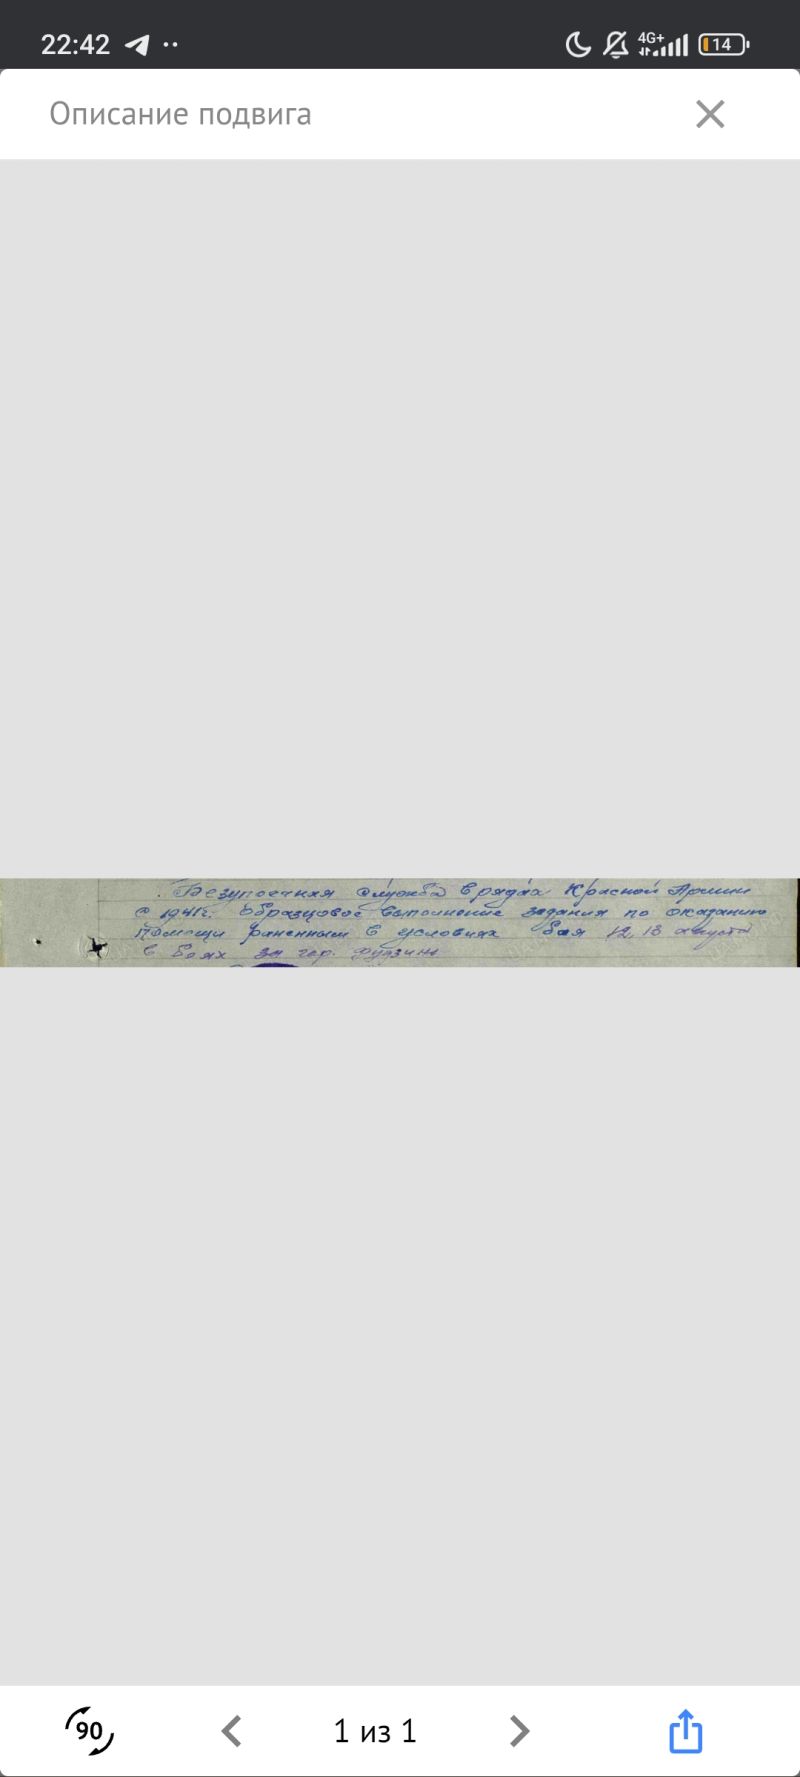 22:42
4G+
14
Описание подвига
Безупречная служба в рядах Красной Армии
с 1941г. Образцовое выполнение задания по оказанию
помощи раненным в условиях боя 12, 13 августа
в боях за гор.
90
1 из 1